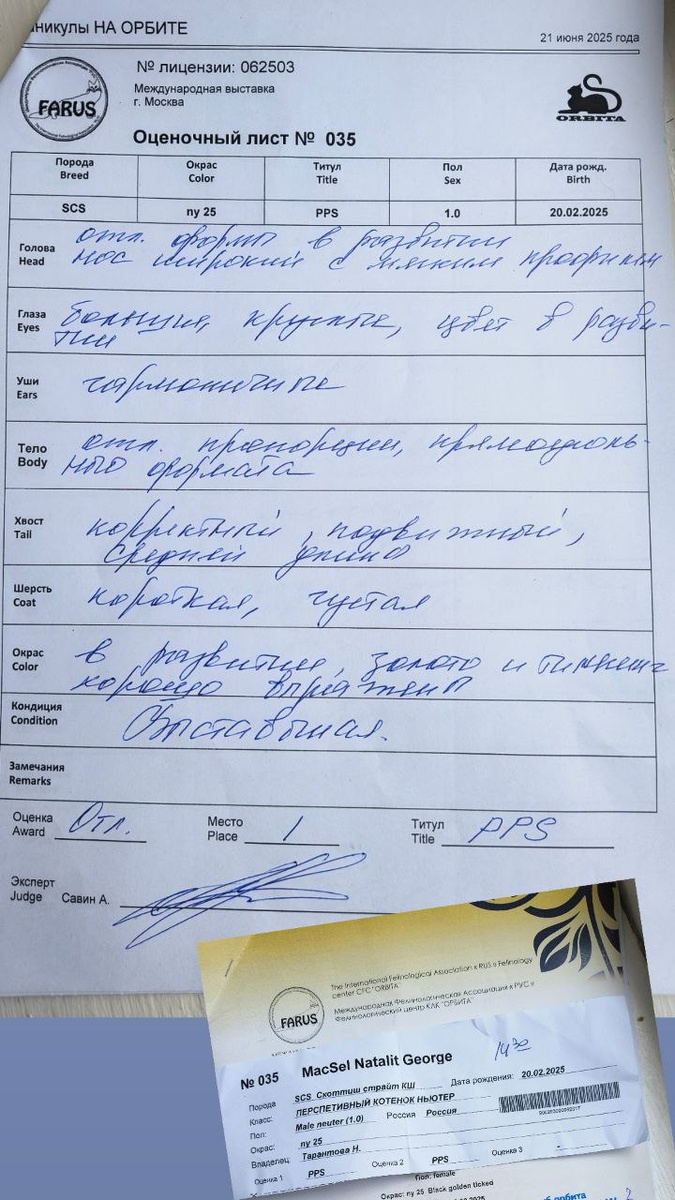 никулы НА ОРБИТЕ
21 июня 2025 года
№ лицензии: 062503
Международная выставка
г. Москва
FARUS
ORBITA
Оценочный лист № 035
Порода Окрас Титул Пол Дата рожд.
Breed Color Title Sex Birth
SCS ny 25 PPS 1.0 20.02.2025
Голова
Head
отл. формы в развитии
нос широкий с мягким профилем
Глаза
Eyes
большие, круглые, цвет в разви-
тии
Уши
Ears
гармоничные
Тело
Body
отл. пропорции, прямоуголь-
ного формата
Хвост
Tail
корректный, подвижный,
средней длины
Шерсть
Coat
короткая, густая
Окрас
Color
в развитии, золото и
хорошо выражены
Кондиция
Condition
Выставочная.
Замечания
Remarks
Оценка
Award Отл.
Место
Place 1
Титул
Title PPS
Эксперт
Judge Савин А.
The International Felinological Association «RUS» Felinology
center CFC "ORBITA"
Международная Фелинологическая Ассоциация «РУС»
Фелинологический центр КЛК "ОРБИТА"
FARUS
№ 035 MacSel Natalit George
14 30
Порода SCS Скоттиш страйт КШ Дата рождения: 20.02.2025
Класс: ПЕРСПЕТИВНЫЙ КОТЕНОК НЬЮТЕР
Пол: Male neuter (1.0) Россия Россия
Окрас: ny 25
Владелец: Тарантова Н.
Оценка 1 PPS Оценка 2 PPS Оценка 3 -
Пол: female
Окрас: ny 25 Black golden ticked
орбита